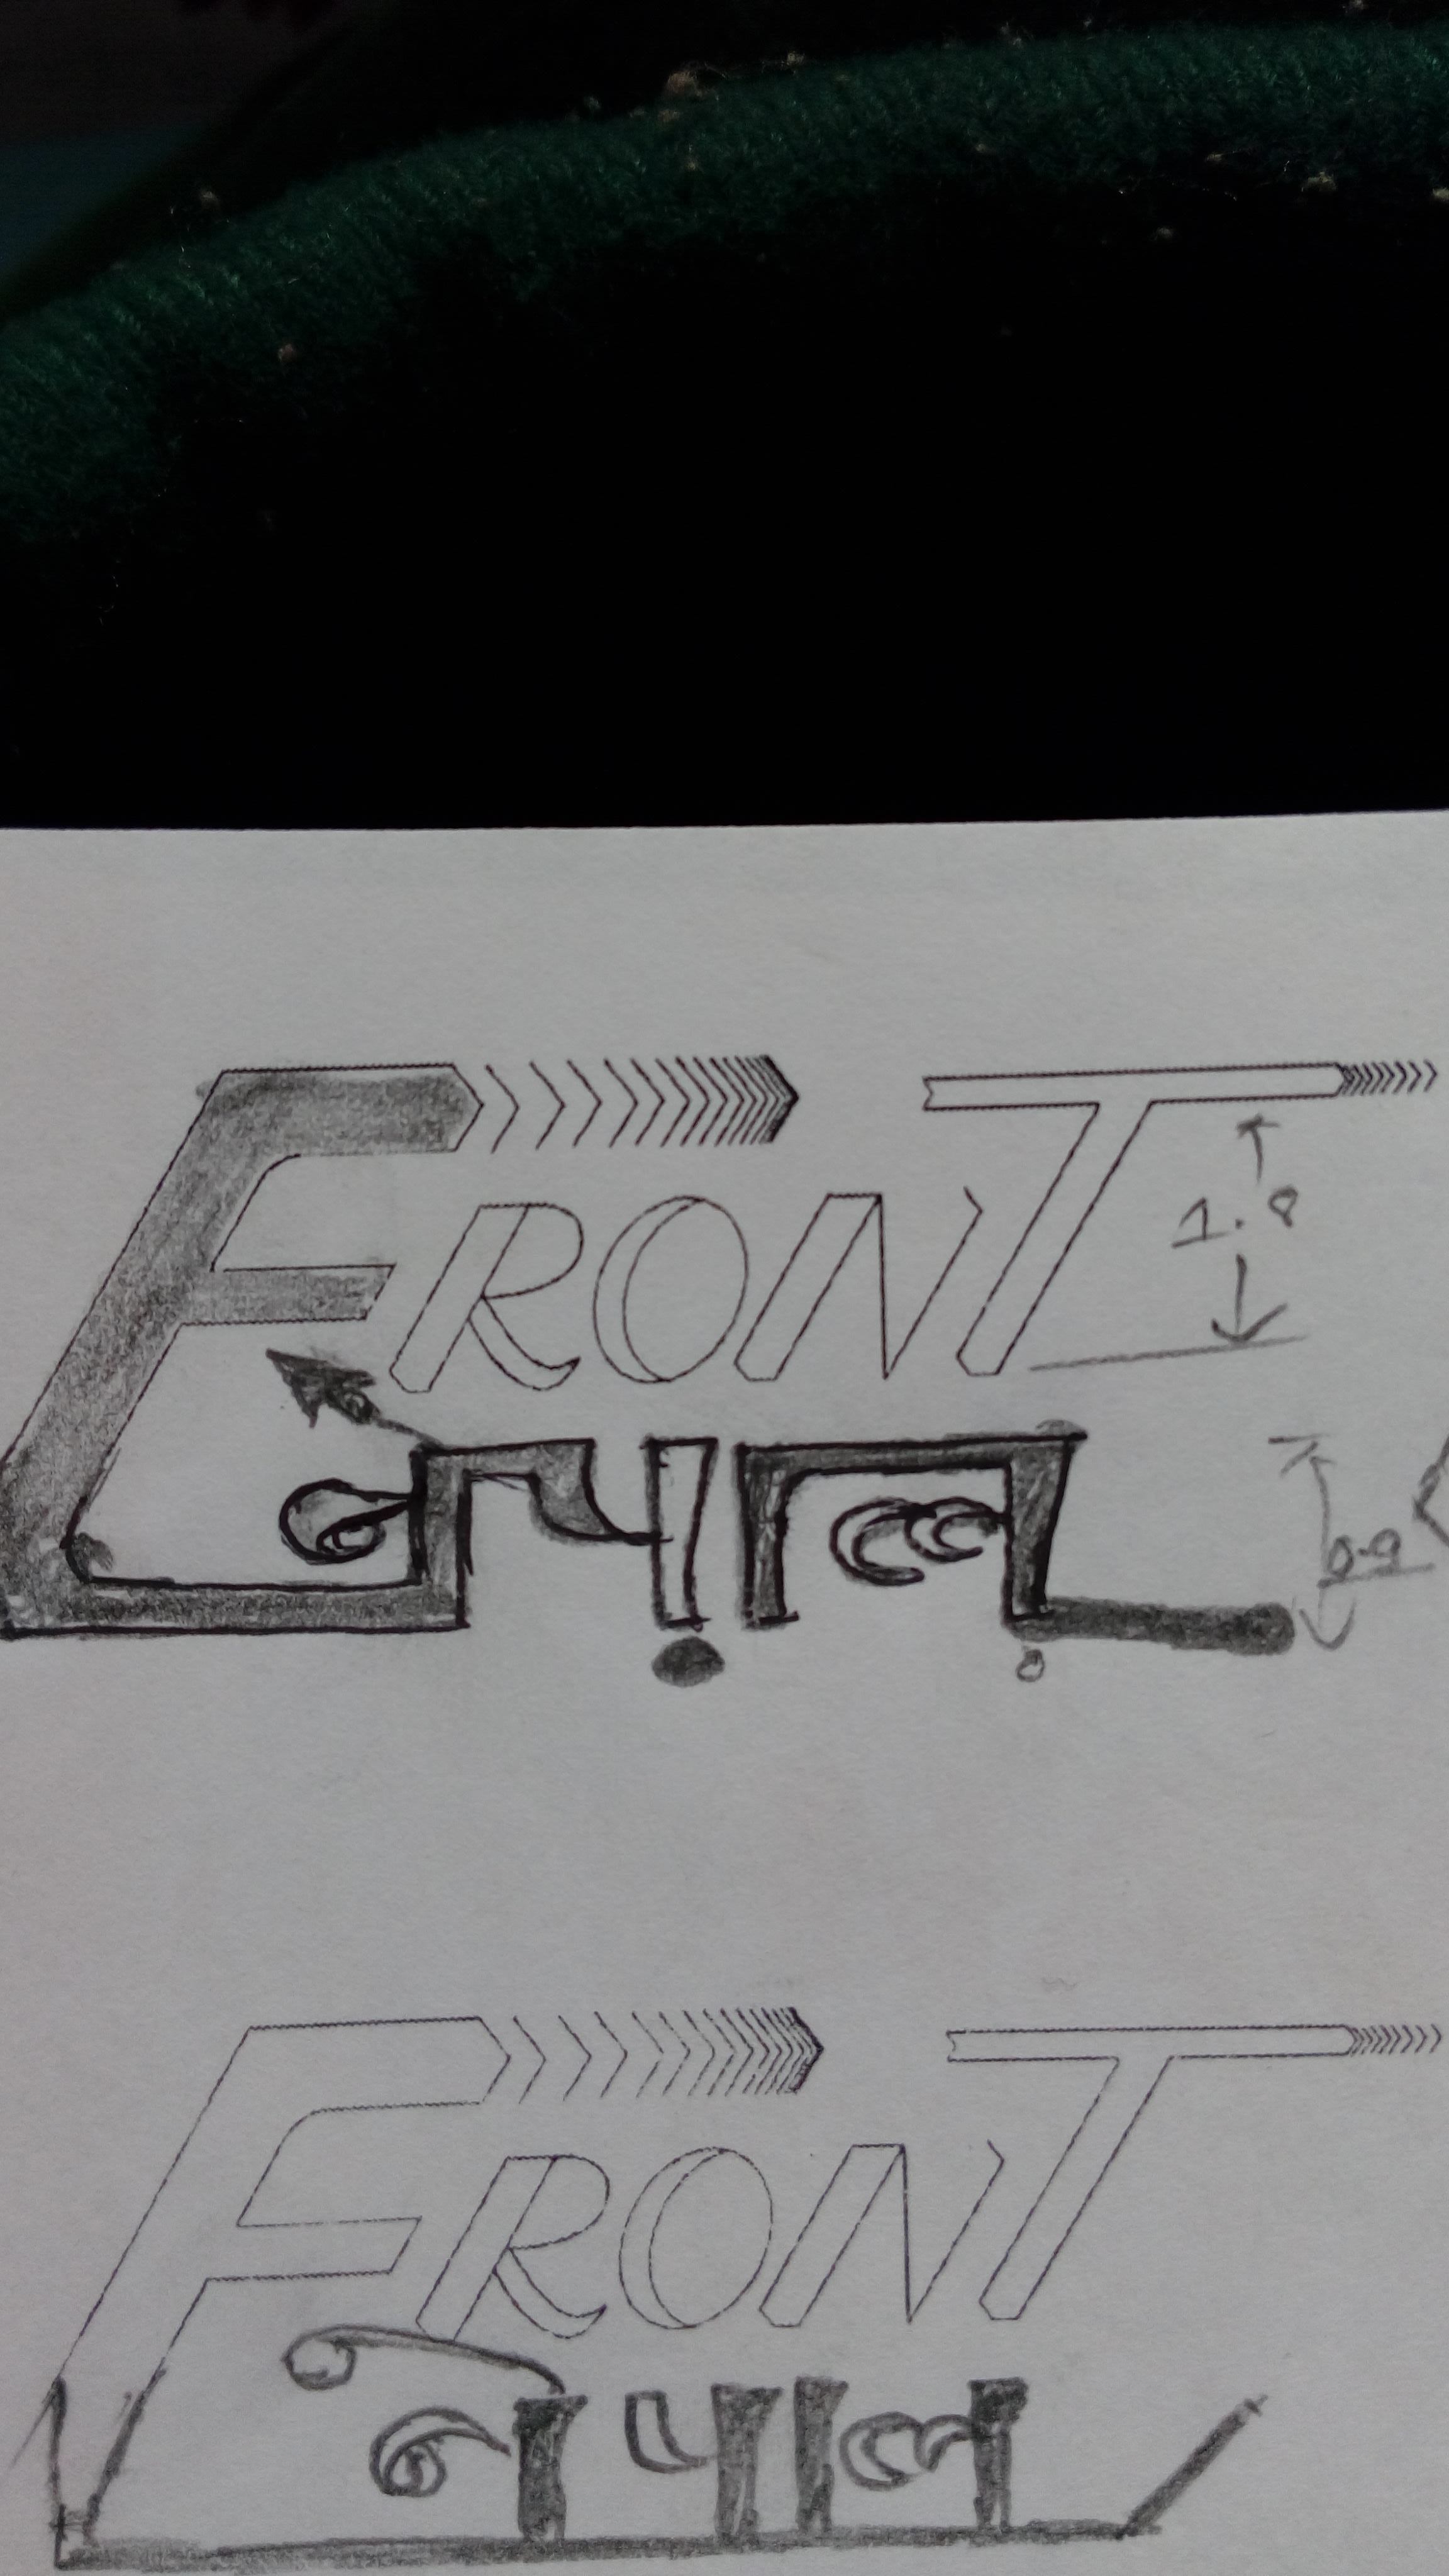 FRONT
1.8
नेपाल
0.9
FRONT
नेपाल